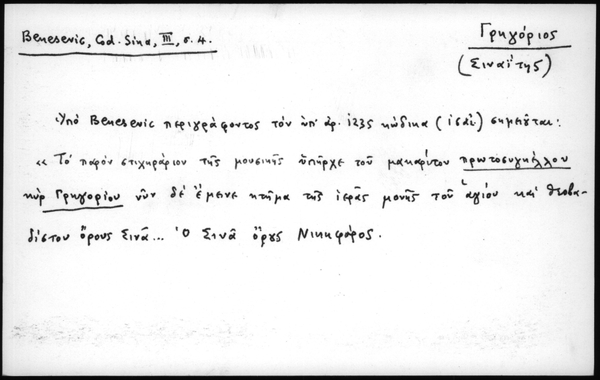 Benesevic, Cod. Sina, III, σ. 4.
Γρηγόριος
(Σιναΐτης)
Ὑπό Benesevic περιγράφοντος τόν ὑπ' ἀρ. 1235 κώδικα (ισαί) σημειοῦται:
«Τό παρόν στιχηράριον τῆς μουσικῆς ὑπῆρχε τοῦ μακαρίτου πρωτοσυγκέλλου
κύρ Γρηγορίου νῦν δέ ἔμεινε κτῆμα τῆς ἱερᾶς μονῆς τοῦ ἁγίου καί θεοβα-
δίστου ὄρους Σινᾶ... Ὁ Σινᾶ ὄρους Νικηφόρος.